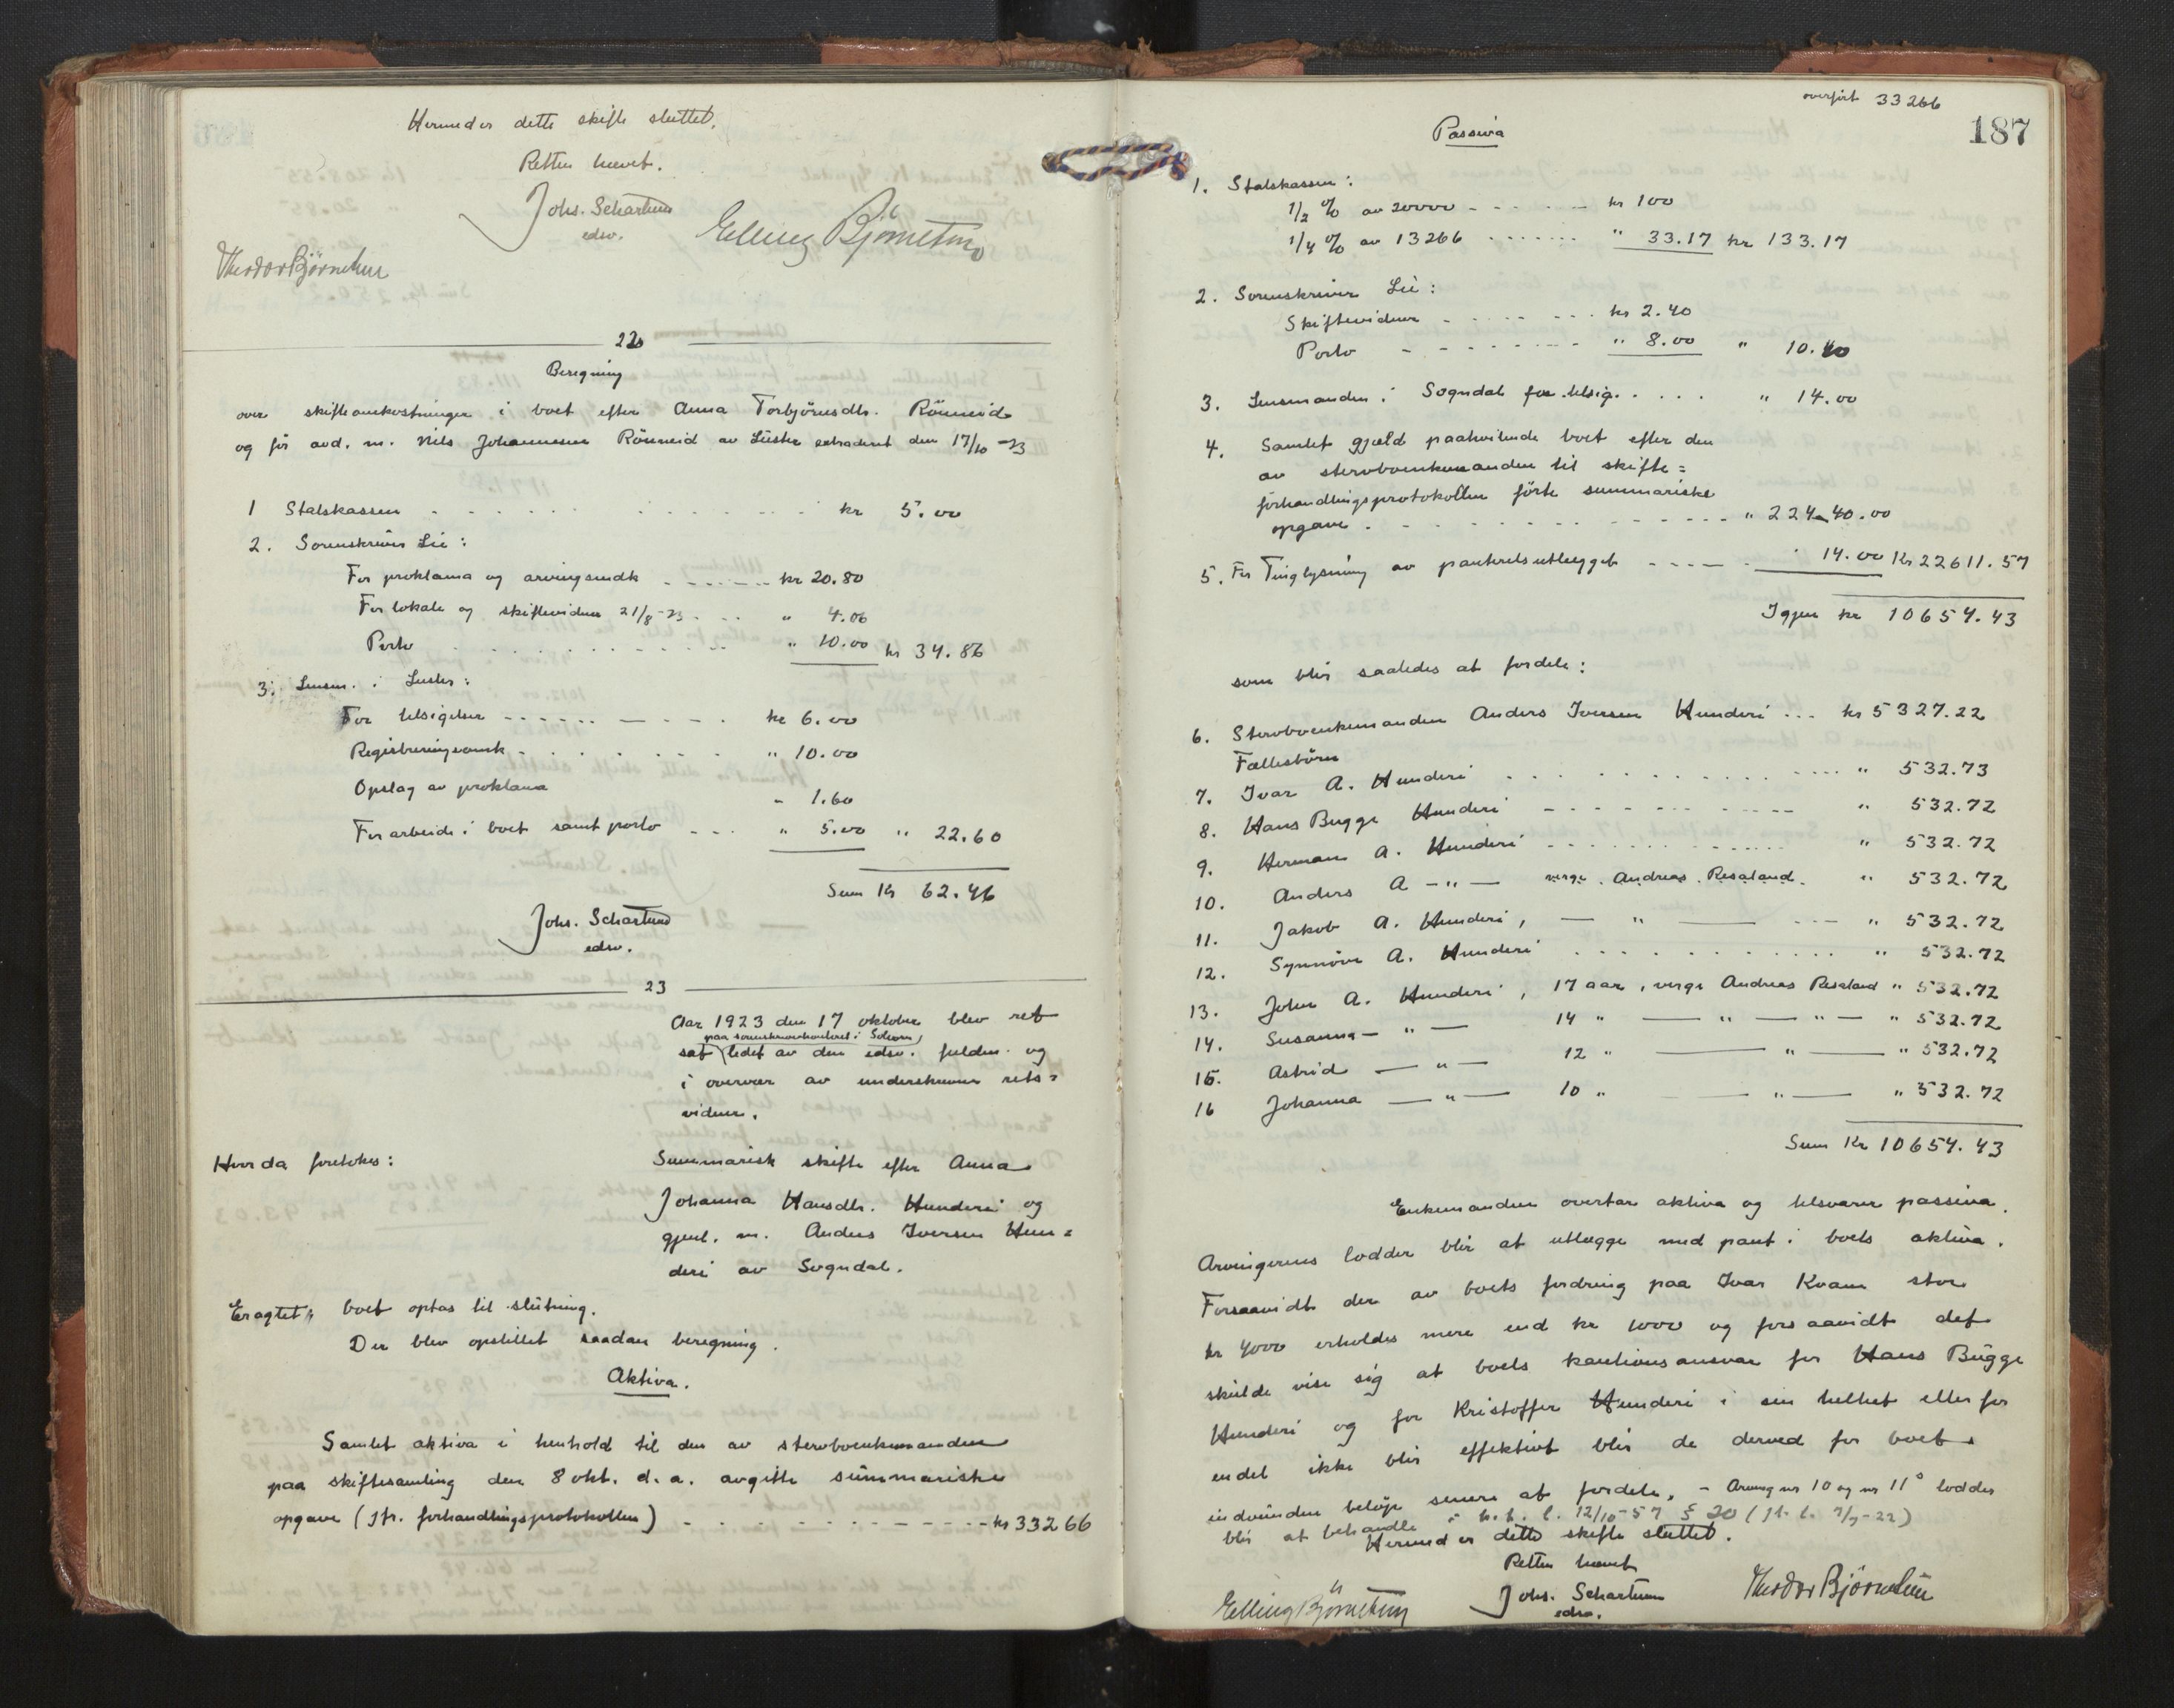 Hermed er dette skifte sluttet.
Retten hævet.
Johs. Schartum
edsv.
Elling Björnetun
Theodor Björnetun
22
Beregning
over skifteomkostninger i boet efter Anna Torbjörnsdtr. Rönneid
og før avd. m. Nils Johannesen Rönneid av Luster extradert den 17/10-23
1 Statskassen kr 5.00
2. Sorenskriver Lie:
For proklama og arvingsindk kr 20.80
For lokale og skiftevidner 21/8-23 " 4.06
Porto " 10.00 kr 34.86
3. Lensm. i Luster:
For tilsigelser kr 6.00
Registreringsomk " 10.00
Opslag av proklama " 1.60
For arbeide i boet samt porto " 5.00 " 22.60
Sum kr 62.46
Johs. Schartum
edsv.
23
Aar 1923 den 17 oktober blev ret
paa sorenskriverkontoret i Solvorn,
sat ledet av den edsv. fuldm. og
i overvær av underskrevne rets=
vidner.
Hvor da foretokes: Summarisk skifte efter Anna
Johanna Hansdtr. Hunderi og
gjenl. m. Anders Iversen Hun=
deri av Sogndal.
Eragtet: boet optas til slutning.
Der blev opstillet saadan beregning.
Aktiva.
Samlet aktiva i henhold til den av stervboenkemanden
paa skiftesamling den 8 okt. d. a. avgitte summariske
opgave (jfr. forhandlingsprotokollen) kr 33266
overført 33266
187
Passiva
1. Statskassen:
1/2 % av 20000 kr 100
1/4 % av 13266 " 33.17 kr 133.17
2. Sorenskriver Lie:
Skiftevidner kr 2.40
Porto " 8.00 " 10.40
3. Lensmanden i Sogndal for tilsig. " 14.00
4. Samlet gjæld paahvilende boet efter den
av stervboenkemanden til skifte=
forhandlingsprotokollen förte summariske
opgave " 22440.00
5. For Tinglysning av panteretsutlægget 14.00 kr 22611.57
Igjen kr 10654.43
som blir saaledes at fordele:
6. Stervboenkemanden Anders Iversen Hunderi kr 5327.22
Fællesbörn
7. Ivar A. Hunderi " 532.73
8. Hans Bugge Hunderi " 532.72
9. Herman A. Hunderi " 532.72
10. Anders A — " — verge Andreas Resaland " 532.72
11. Jakob A. Hunderi, — " — " 532.72
12. Synnöve A. Hunderi " 532.72
13. John A. Hunderi, 17 aar, verge Andreas Resaland " 532.72
14. Susanna — " — 14 " — " — " — " 532.72
15. Astrid — " — 12 " — " — " 532.72
16 Johanna — " — 10 " — " — " 532.72
Sum Kr 10654.43
Enkemanden overtar aktiva og tilsvarer passiva.
Arvingernes lodder blir at utlægge med pant i boets aktiva.
Forsaavidt der av boets fordring paa Ivar Kvam stor
kr 4000 erholdes mere end kr 1000 og forsaavidt det
skulde vise sig at boets kautionsansvar for Hans Bugge
Hunderi og for Kristoffer Hunderi i sin helhet eller for
endel ikke blir effektivt blir de derved for boet
indvundne beløp senere at fordele. - Arving nr 10 og nr 11s lodder
blir at behandle i h. h. l. 12/10-57 § 20 (jfr. l. 7/7-22)
Hermed er dette skifte sluttet.
Retten hævet
Elling Björnetun
Johs. Schartum
edsv.
Theodor Björnetun